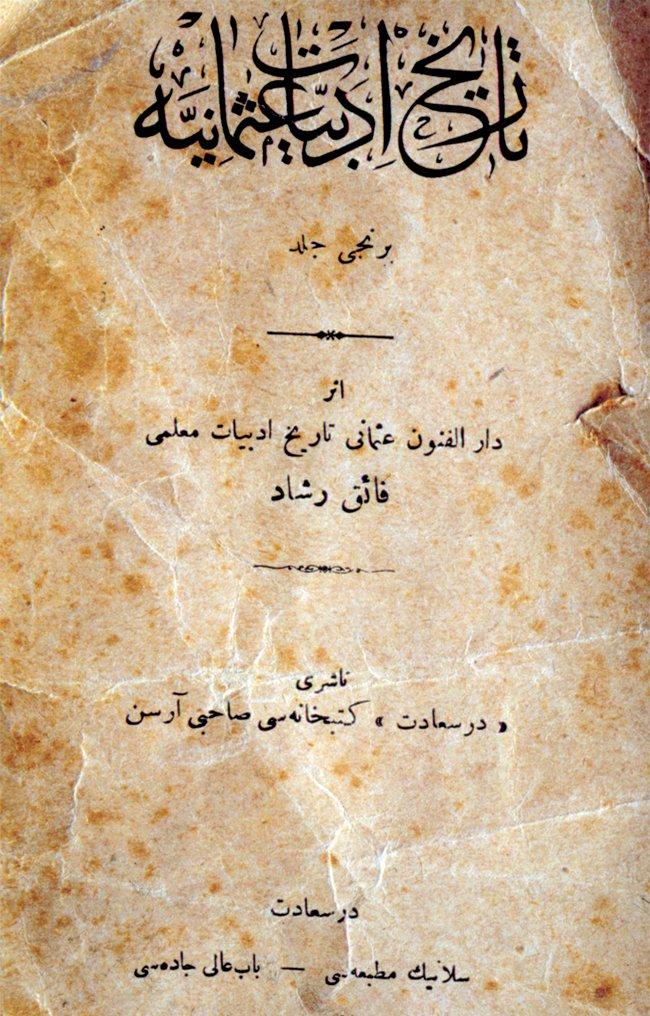 تاريخ ادبيات عثمانيّه
برنجى جلد
اثر
دار الفنون عثمانى تاريخ ادبيات معلمى
فائق رشاد
ناشرى
« درسعادت » كتبخانه سى صاحبى آرسن
درسعادت
سلانيك مطبعه سى — باب عالى جاده سى